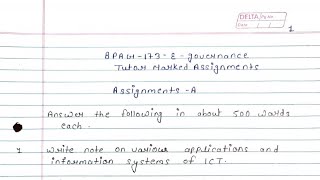 DELTA Pg No
Date / /
1
BPAG-173-E-governance
Tutor Marked Assignments
Assignments -A
Answer the following in about 500 words
each.
1 Write note on various applications and
information systems of ICT.